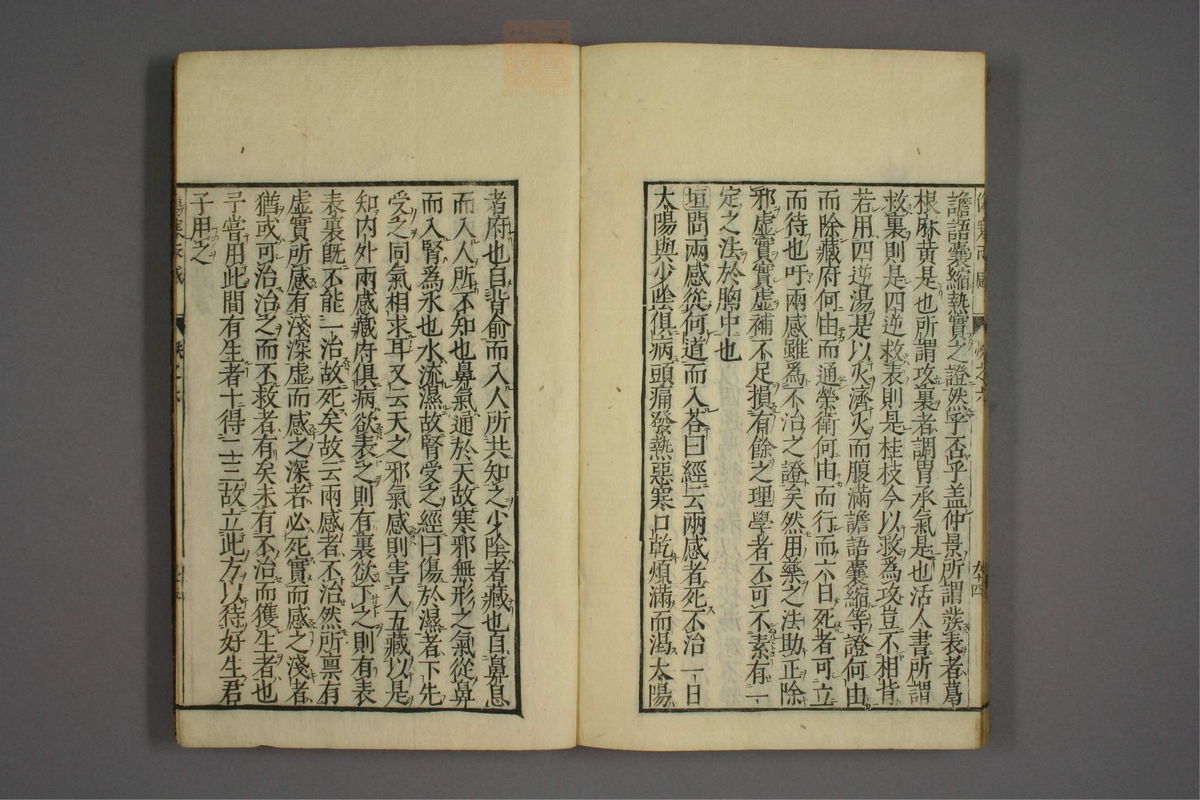 譫語囊縮熱實之證然乎否乎盖仲景所謂發表者葛
根麻黃是也所謂攻裏者調胃承氣是也活人書所謂
救裏則是四逆救表則是桂枝今以救爲攻豈不相背
若用四逆湯是以火濟火而腹滿譫語囊縮等證何由
而除藏府何由而通榮衛何由而行而六日死者可立
而待也吁兩感雖爲不治之證矣然用藥之法助正除
邪虛實實虛補不足損有餘之理學者不可不素有一
定之法於胸中也
垣問兩感從何道而入荅曰經云兩感者死不治一日
太陽與少陰俱病頭痛發熱惡寒口乾煩滿而渴太陽
者府也自背俞而入人所共知之少陰者藏也自鼻息
而入人所不知也鼻氣通於天故寒邪無形之氣從鼻
而入腎爲水也水流濕故腎受之經曰傷於濕者下先
受之同氣相求耳又云天之邪氣感則害人五藏以是
知內外兩感藏府俱病欲表之則有裏欲下之則有表
表裏既不能一治故死矣故云兩感者不治然所禀有
虛實所感有淺深虛而感之深者必死實而感之淺者
猶或可治治之而不救者有矣未有不治而獲生者也
予嘗用此間有生者十得二三故立此方以待好生君
子用之